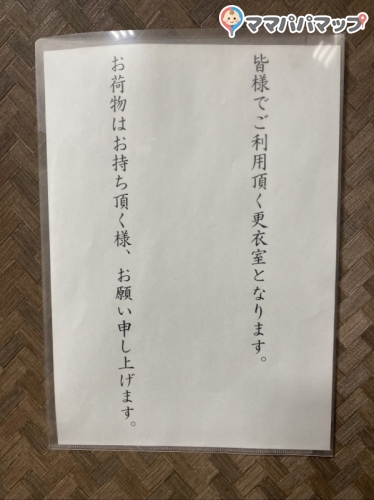 ママパパマップ
皆様でご利用頂く更衣室となります。
お荷物はお持ち頂く様、お願い申し上げます。